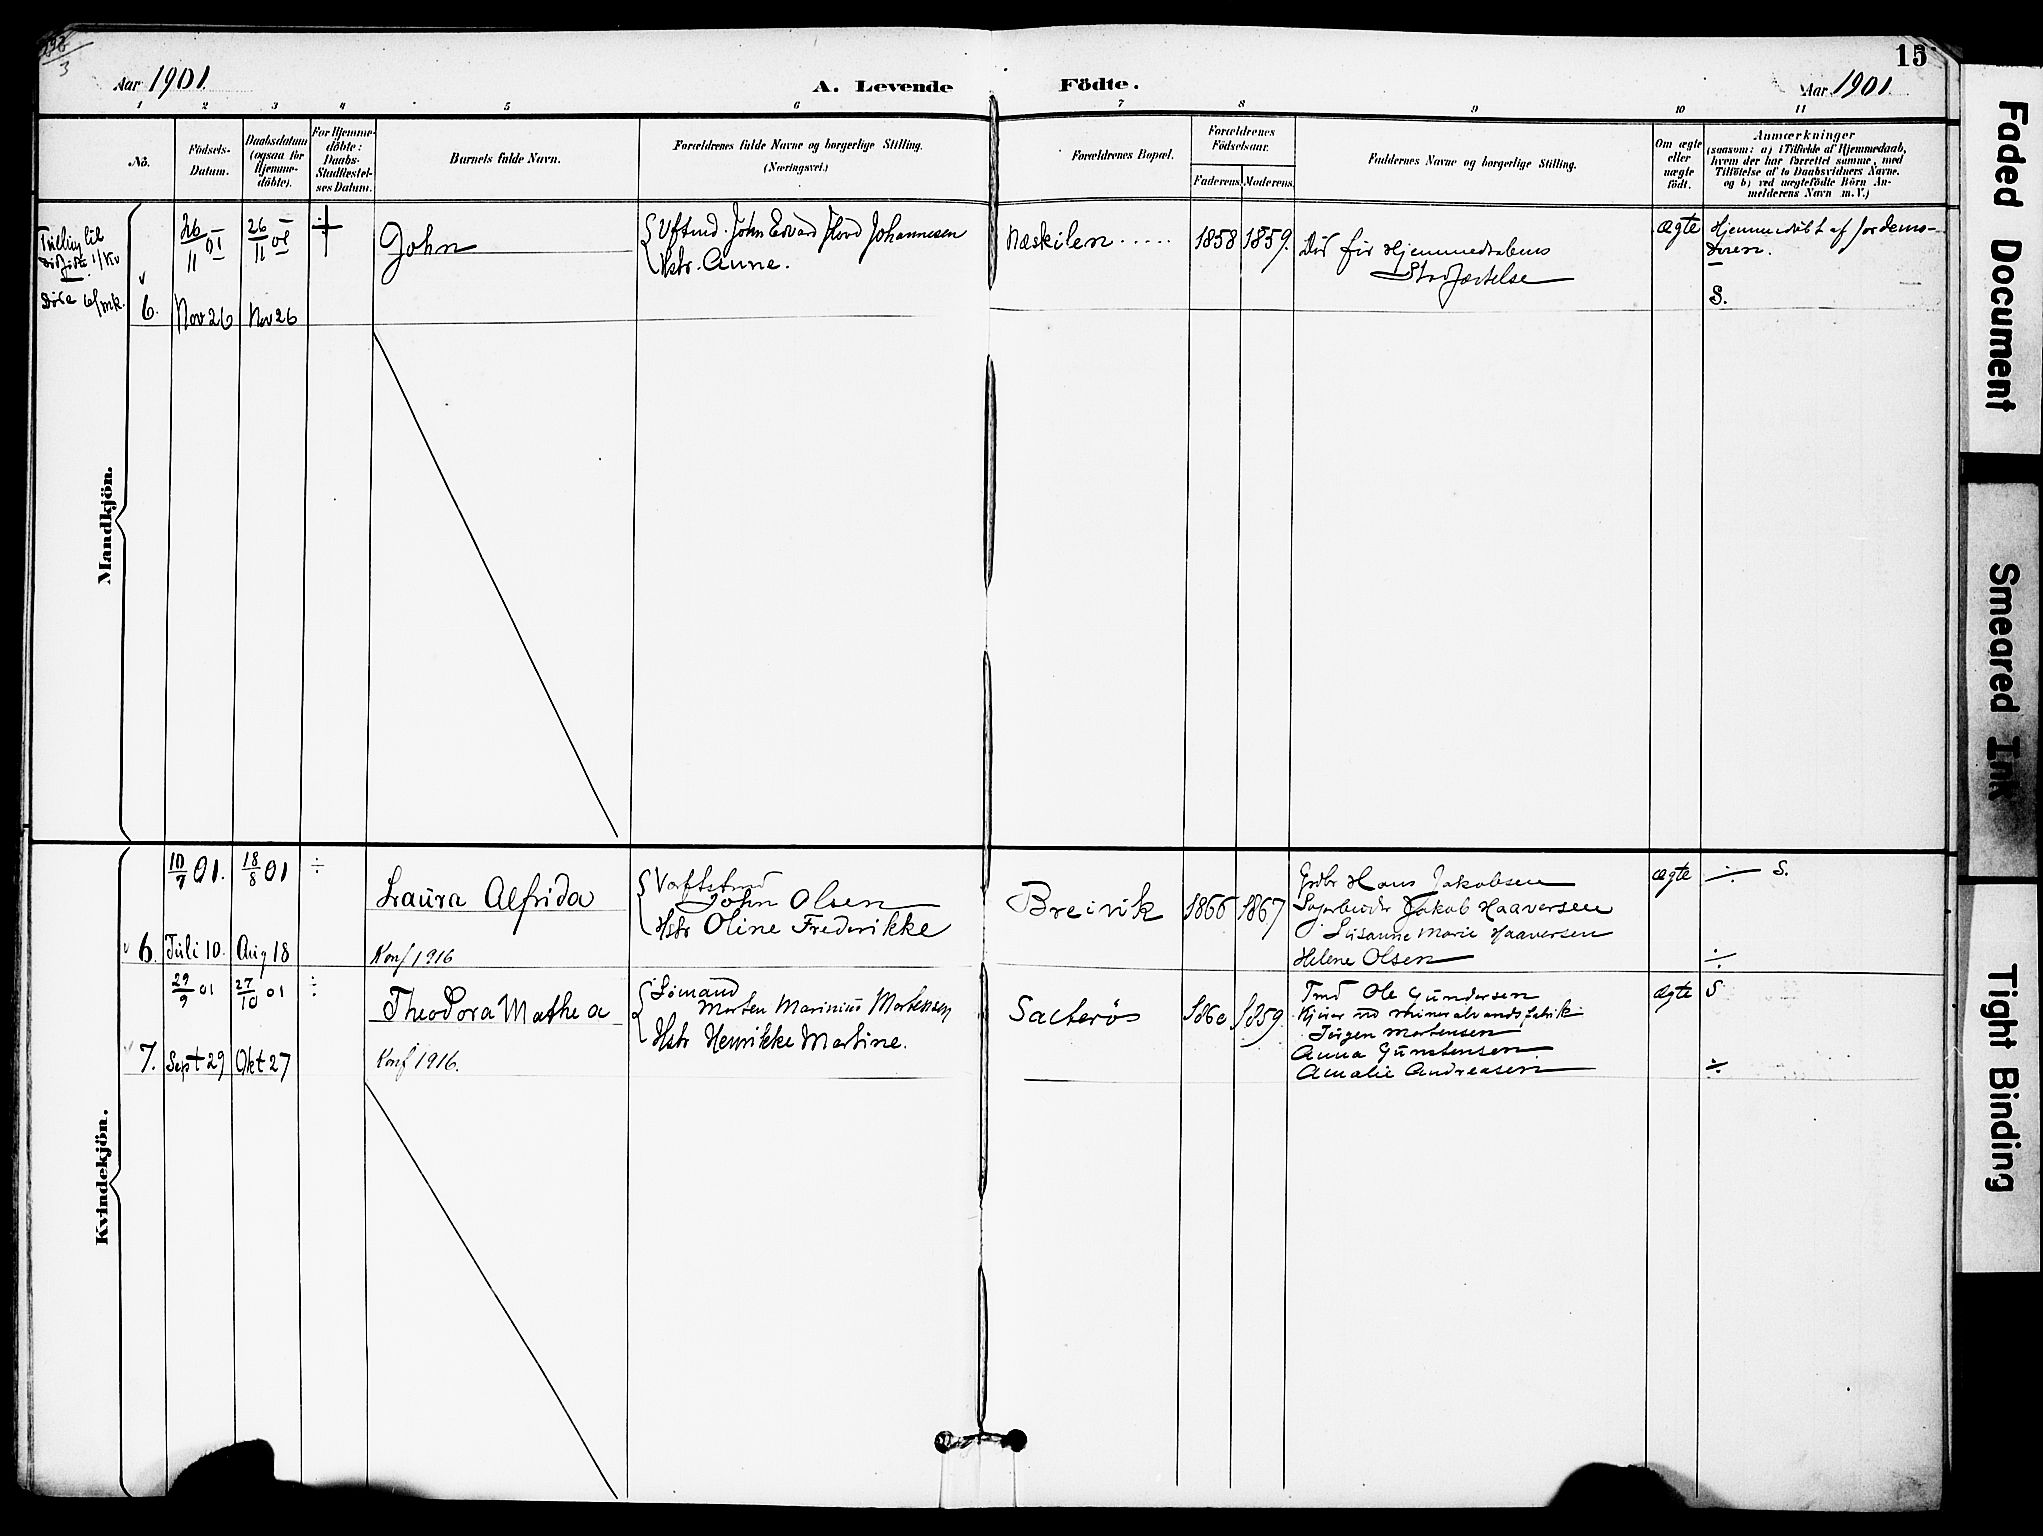 Aar 1901.
A. Levende Födte.
Aar 1901
15
1 2 3 4 5 6 7 8 9 10 11
No.
Födsels-
Datum.
Daabsdatum
(ogsaa for
Hjemme-
døbte).
For Hjemme-
döbte:
Daabs-
Stadfæstel-
ses Datum.
Barnets fulde Navn.
Forældrenes fulde Navne og borgerlige Stilling.
(Næringsvei.)
Forældrenes Bopæl.
Forældrenes
Födselsaar.
Faderens. Moderens.
Faddernes Navne og borgerlige Stilling.
Om ægte
eller
uægte
födt.
Anmærkninger
(saasom: a) i Tilfælde af Hjemmedaab,
hvem der har forrettet samme, med
Tilföielse af to Daabsvidners Navne.
og b) ved uægtefödte Börn An-
melderens Navn m. V.)
Mandkjön.
6.
26/11 01
Nov 26
26/11 01
Nov 26
John
John Edvard Johannesen
Hstr. Anne.
Næskilen .....
1858
1859.
Död för Hjemmedaabens
Stadfæstelse
ægte
Hjemmedöbt af Jordemo-
deren.
S.
Kvindekjön.
6.
10/7 01.
Juli 10.
18/8 01
Aug 18
÷
Laura Alfrida
Konf 1916
John Olsen
Hstr Oline Frederikke
Breivik
1866
1867
Grdbr Hans Jakobsen
Jakob Haaversen
Susanne Marie Haaversen
Helene Olsen
ægte
÷ S.
÷
7.
29/9 01
Sept 29
27/10 01
Okt 27
÷
Theodora Mathea
Konf 1916.
Sömand
Morten Marinius Mortensen
Hstr Henrikke Martine.
Salterøs
1859
Tmd Ole Gundersen
Kjører ved Mineralvandsfabrik
Jörgen Mortensen
Anna Gunstensen
Amalie Andreasen
ægte
S
÷
Faded Document
Smeared Ink
Tight Binding